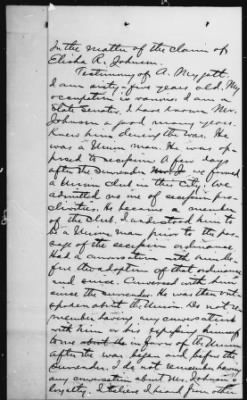 In the matter of the claim of
Elisha R. Johnson.
Testimony of A. Mygatt.
I am sixty-five years old. My
occupation is various. I am a
State Senator. I have known Mr.
Johnson a good many years.
Knew him during the war. He
was a Union man. He was op-
posed to secession. A few days
after the surrender we formed
a Union club in this City; we
admitted no one of secession pro-
clivities. He became a member
of the Club. I understood him to
be a Union man prior to the pas-
sage of the secession ordinance.
Had a conversation with him be-
fore the adoption of that ordinance
and since. Conversed with him
since the surrender. He was then out
spoken about the Union. Do not re-
member having any conversations
with him or his expressing himself
to me in favor of the Union
after the war began and before the
surrender. I do not remember having
any conversation about Mr. Johnson's
loyalty. I believe I heard from other